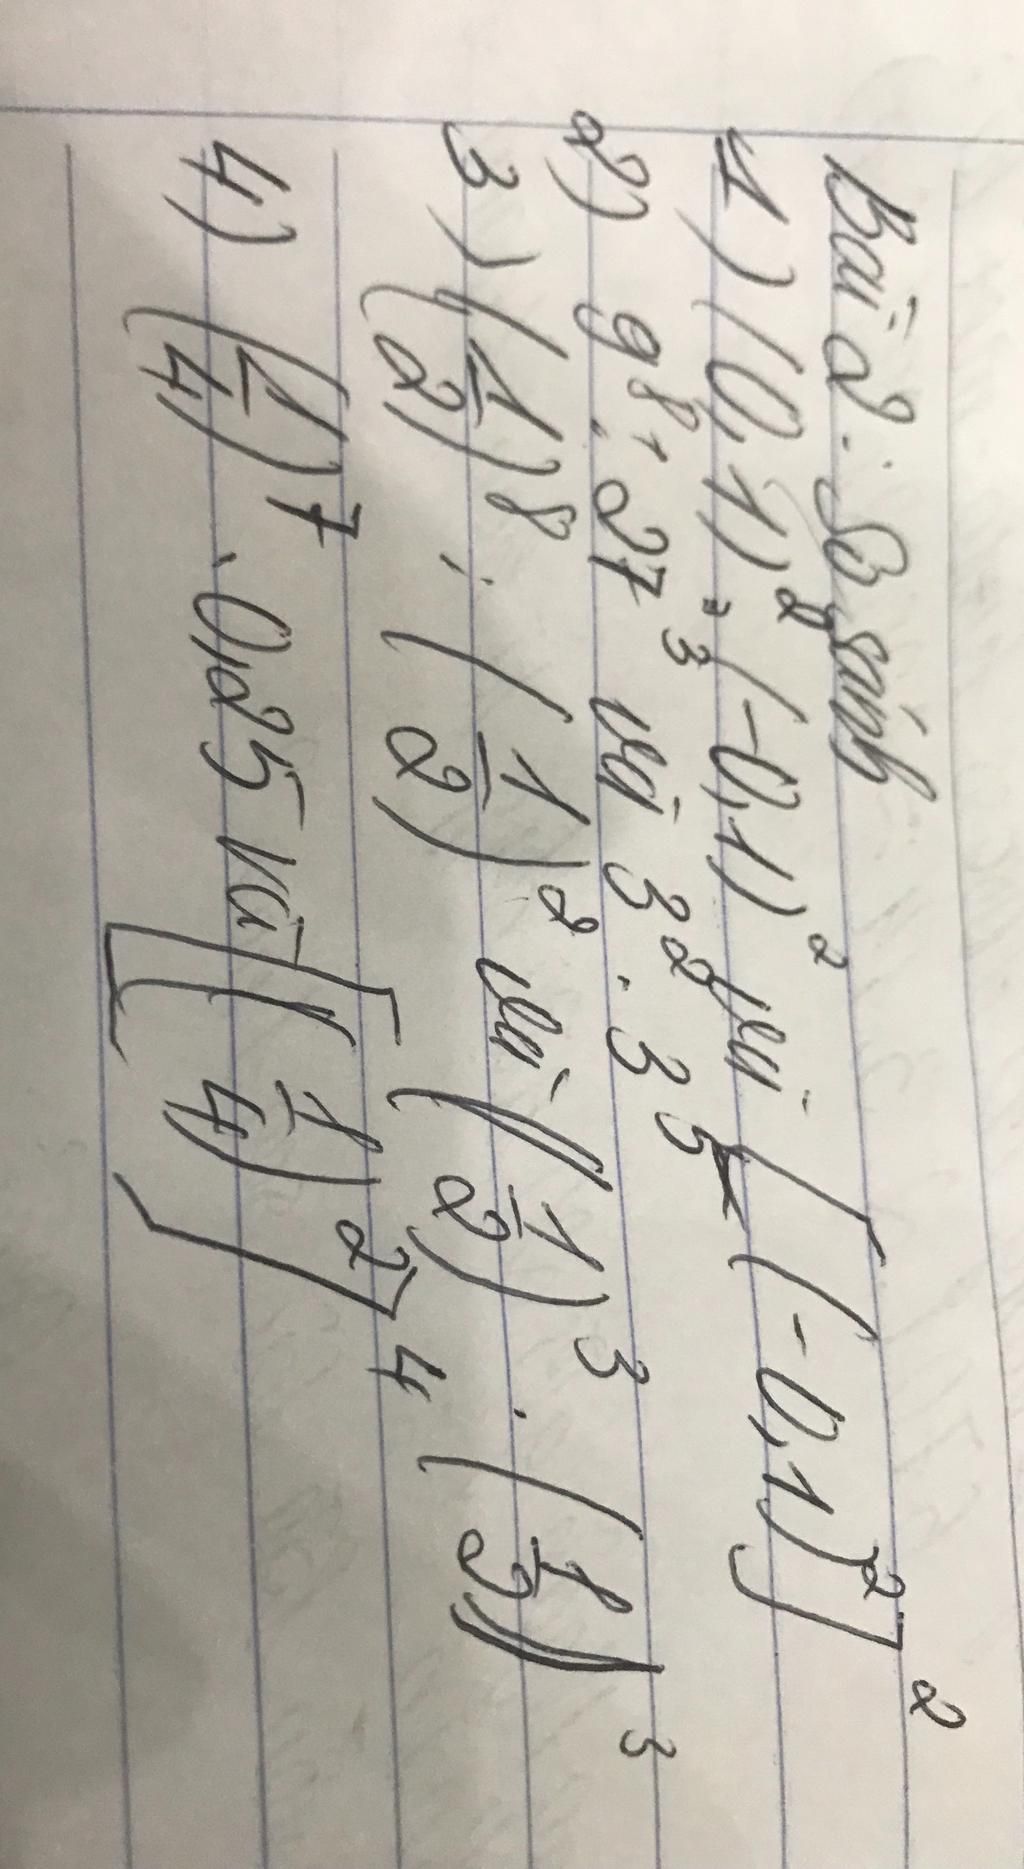 Bài 2: So sánh
1) (0,1)² · (-0,1)² và [(-0,1)²]²
2) 9⁸ : 27³ và 3² · 3⁵
3) (1/2)⁸ : (1/2)² và (1/2)³ · (1/2)³
4) (1/4)⁷ · 0,25 và [(1/4)²]⁴